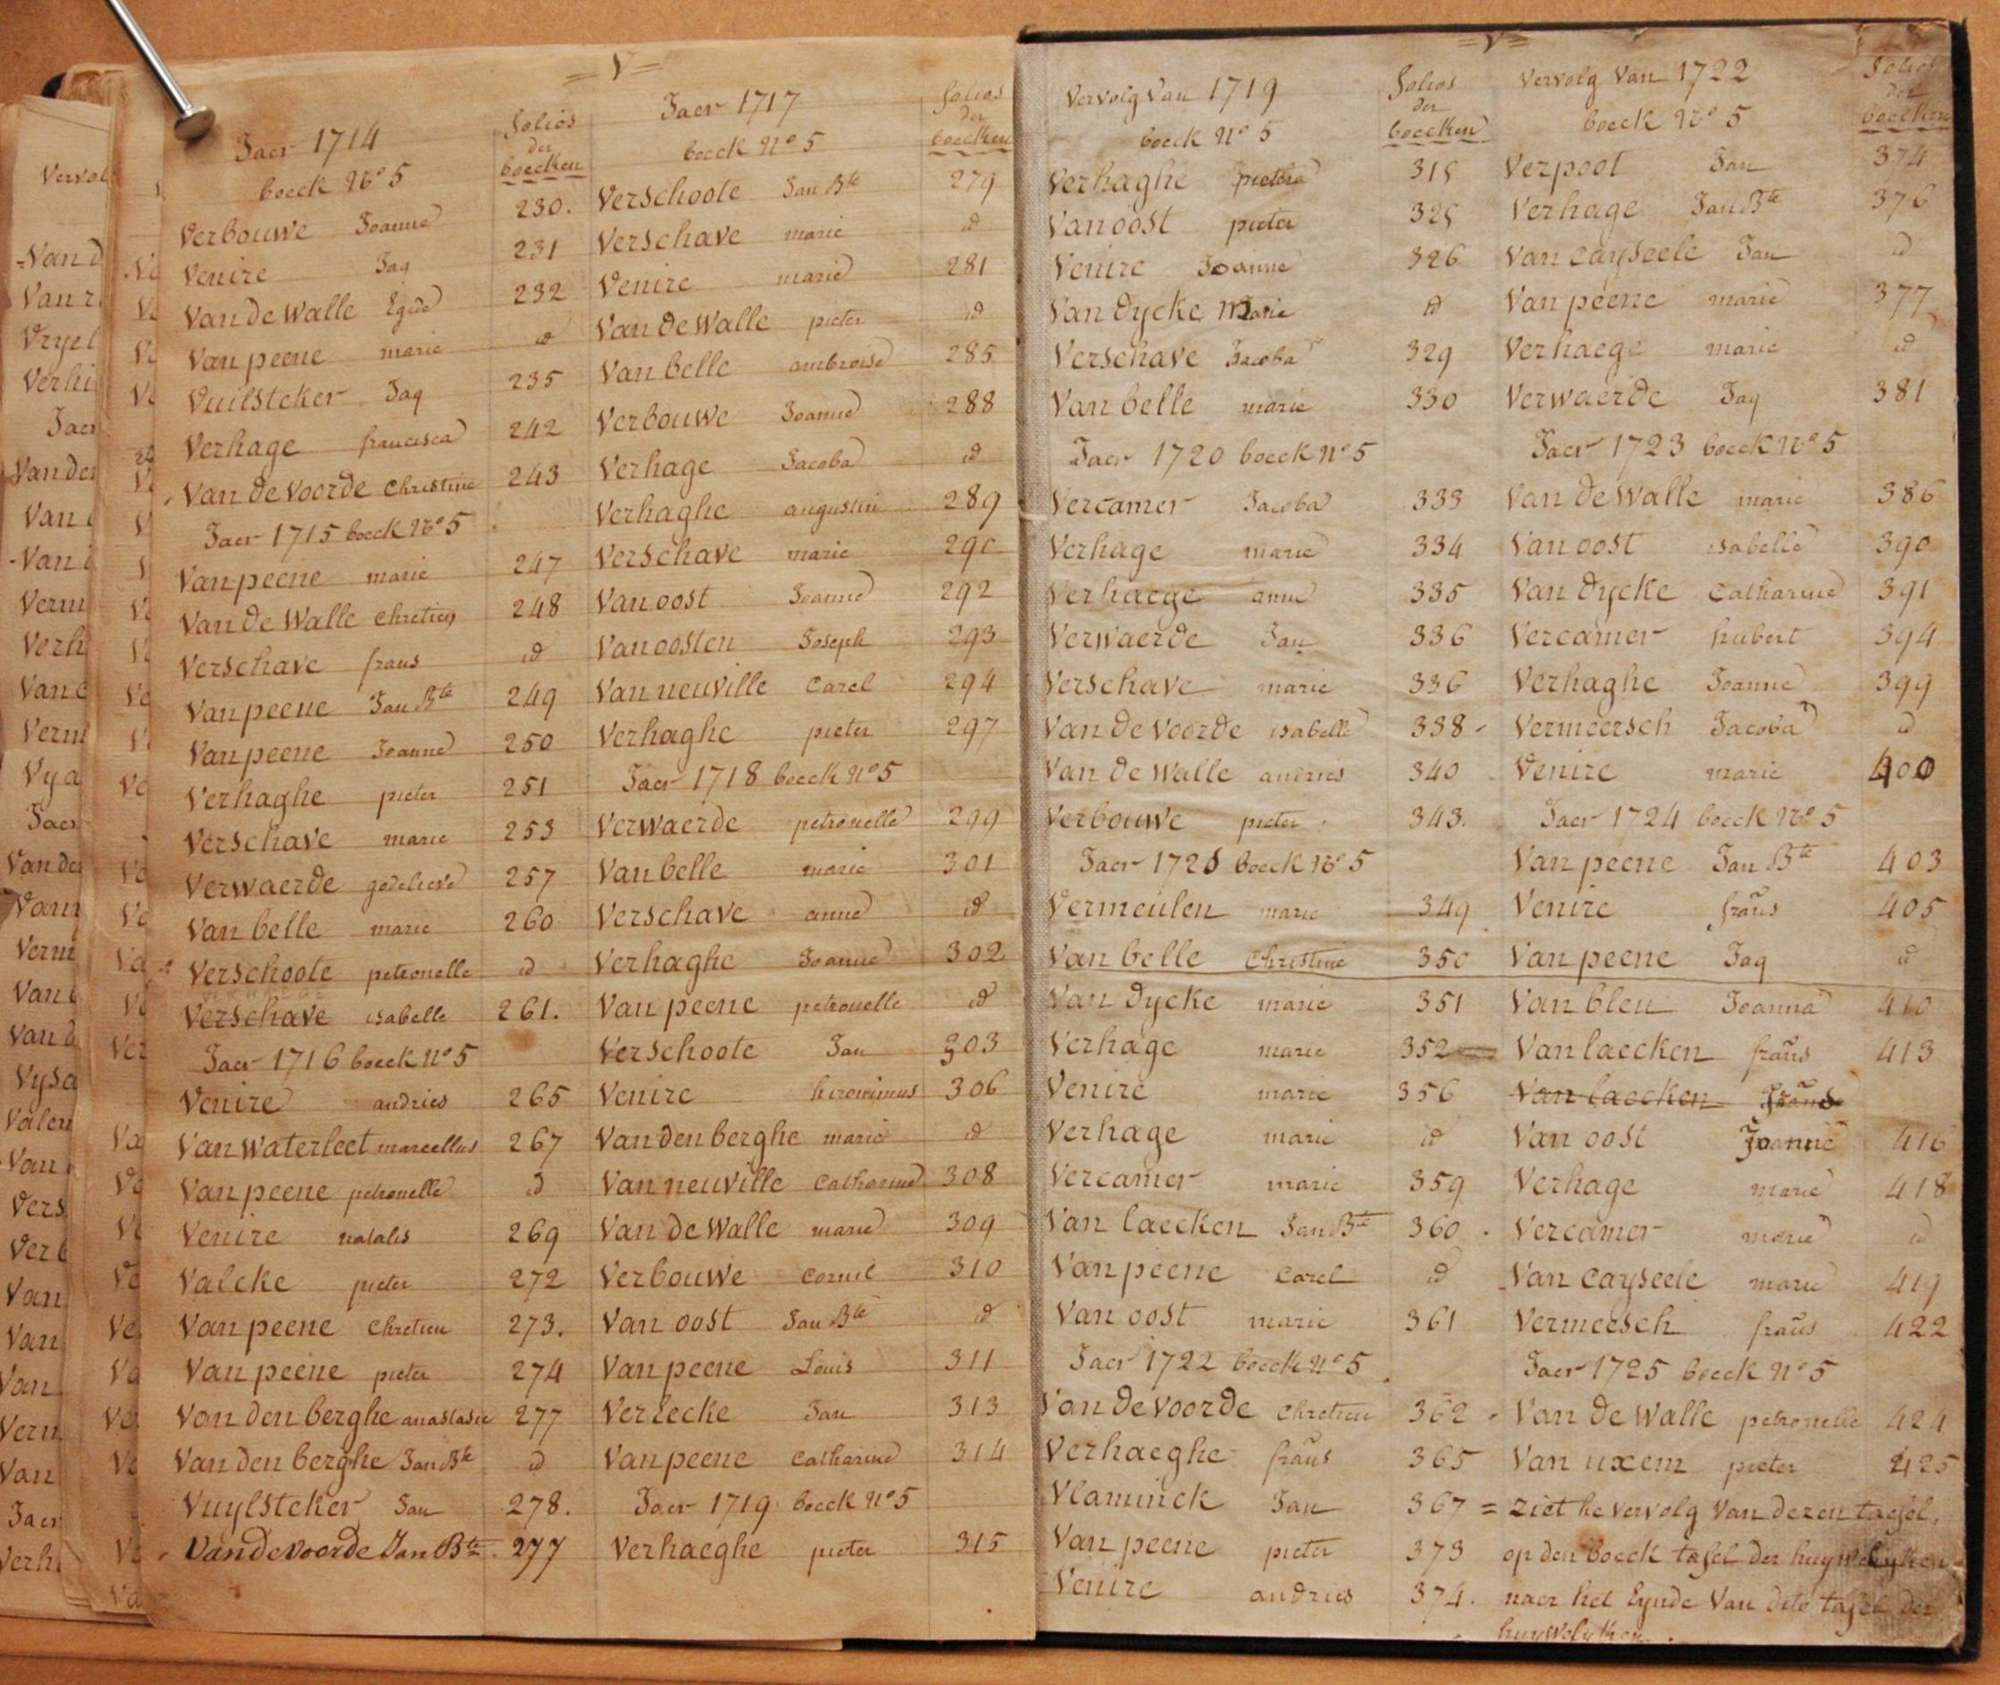 =V=
Jaer 1714
boeck No 5
folios
der
boecken
Verbouwe Joanne 230.
Venire Jaq 231
Van de Walle Egide 232
Van peene marie id
Vuilsteker Jaq 235
Verhage francisca 242
Van de Voorde Christine 243
Jaer 1715 boeck No 5
Van peene marie 247
Van de Walle Chretien 248
Verschave frans id
Van peene Jan Bte 249
Van peene Joanne 250
Verhaghe pieter 251
Verschave marie 253
Verwaerde godelieve 257
Van belle marie 260
Verschoote petronelle id
Verschave isabelle 261.
Jaer 1716 boeck No 5
Venire andries 265
Van waterleet marcellus 267
Van peene petronelle id
Venire natalis 269
Valcke pieter 272
Van peene Chretien 273.
Van peene pieter 274
Van den berghe anastasie 277
Van den berghe Jan Bte id
Vuylsteker Jan 278.
Van de voorde Jan Bte. 277
Jaer 1717
boeck No 5
folios
der
boecken
Verschoote Jan Bte 279
Verschave marie id
Venire marie 281
Van de Walle pieter id
Van belle ambroise 285
Verbouwe Joanne 288
Verhage Jacoba id
Verhaghe augustin 289
Verschave marie 290
Van oost Joanne 292
Van oosten Joseph 293
Van neuville Carel 294
Verhaghe pieter 297
Jaer 1718 boeck No 5
Verwaerde petronelle 299
Van belle marie 301
Verschave anne id
Verhaghe Joanne 302
Van peene petronelle id
Verschoote Jan 303
Venire hieronimus 306
Van den berghe marie id
Van neuville Catharine 308
Van de Walle marie 309
Verbouwe Cornil 310
Van oost Jan Bte id
Van peene Louis 311
Verlecke Jan 313
Van peene Catharine 314
Jaer 1719 boeck No 5
Verhaeghe pieter 315
=V=
Vervolg Van 1719
boeck No 5
folios
der
boecken
Verhaghe 315
Van oost pieter 325
Venire Joanne 326
Van Dycke Marie id
Verschave Jacoba 329
Van belle marie 330
Jaer 1720 boeck No 5
Vercamer Jacoba 333
Verhage marie 334
Verhaege anne 335
Verwaerde Jan 336
Verschave marie 336
Van de Voorde isabelle 338
Van de Walle andries 340
Verbouwe pieter 343.
Jaer 1721 boeck No 5
Vermeulen marie 349
Van belle Christine 350
Van Dycke marie 351
Verhage marie 352
Venire marie 356
Verhage marie id
Vercamer marie 359
Van laecken Jan Bte 360
Van peene Carel id
Van oost marie 361
Jaer 1722 boeck No 5
Van de voorde Chretien 362
Verhaeghe frans 365
Vlaminck Jan 367
Van peene pieter 373
Venire andries 374.
Vervolg Van 1722
boeck No 5
folios
der
boecken
Verpoot Jan 374
Verhage Jan Bte 376
Van Cayseele Jan id
Van peene marie 377
Verhaege marie id
Verwaerde Jaq 381
Jaer 1723 boeck No 5
Van de Walle marie 386
Van oost isabelle 390
Van Dycke Catharine 391
Vercamer hubert 394
Verhaghe Joanne 399
Vermeersch Jacoba id
Venire marie 400
Jaer 1724 boeck No 5
Van peene Jan Bte 403
Venire frans 405
Van peene Jaq id
Van bleu Joanna 410
Van laecken frans 413
Van laecken frans
Van oost Joanne 416
Verhage marie 418
Vercamer marie id
Van Cayseele marie 419
Vermeersch frans 422
Jaer 1725 boeck No 5
Van de Walle petronelle 424
Van uxem pieter 425
= ziet he vervolg Van dezen taefel,
op den boeck tafel der huywelyken
naer het Eynde Van dite tafel der
huywelyken.